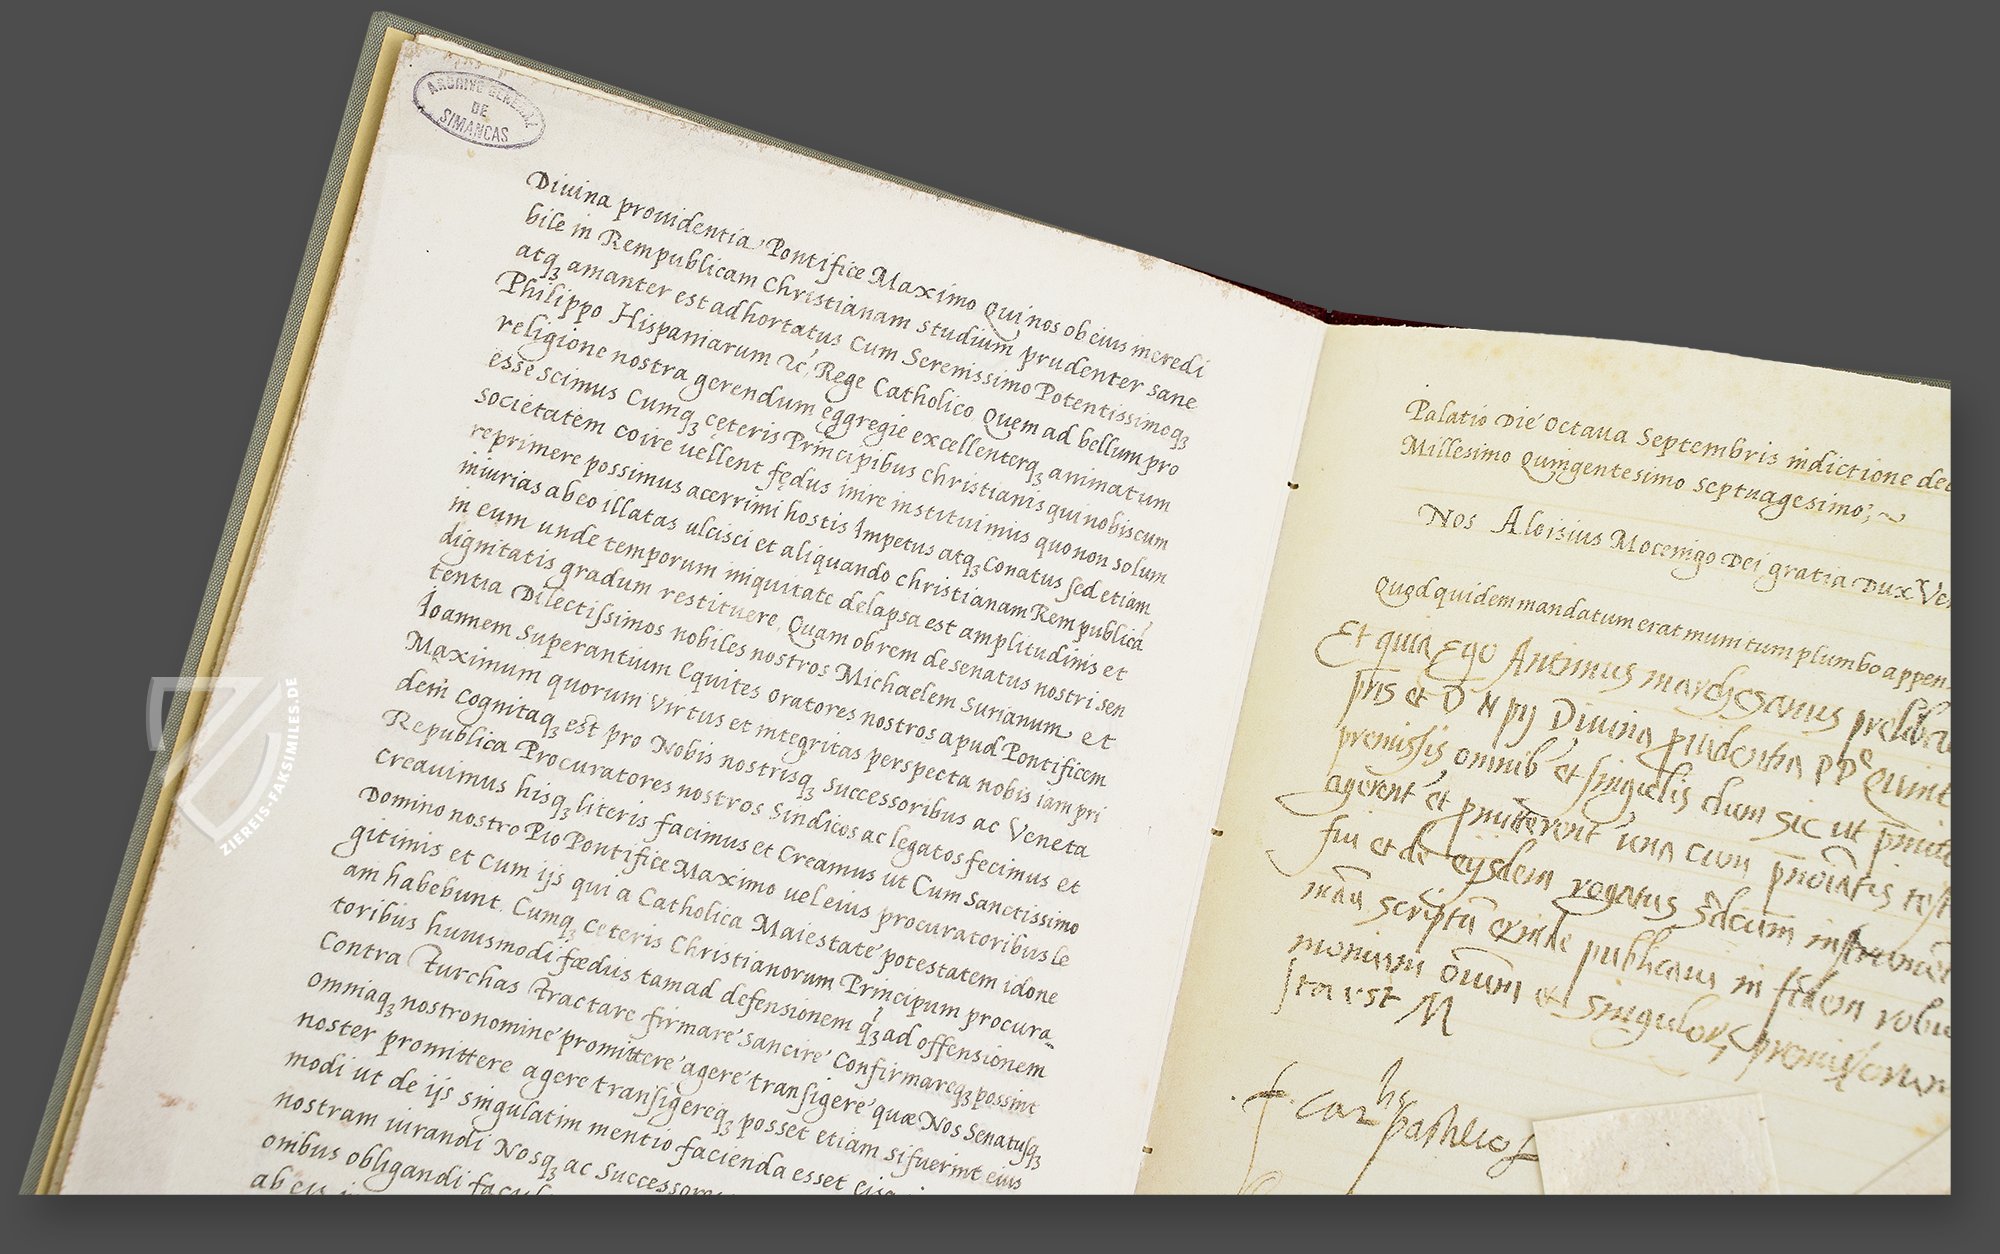 ARCHIVO GENERAL
DE
SIMANCAS
Diuina prouidentia Pontifice Maximo Qui nos ob eius incredi
bile in Rempublicam Christianam studium prudenter sane
atq; amanter est adhortatus Cum Serenissimo Potentissimoq;
Philippo Hispaniarum &c, Rege Catholico Quem ad bellum pro
religione nostra gerendum eggregie excellenterq; animatum
esse scimus Cumq; cęteris Principibus christianis qui nobiscum
societatem coire uellent fędus inire instituimus quo non solum
reprimere possimus acerrimi hostis Impetus atq; Conatus sed etiam
iniurias ab eo illatas ulcisci et aliquando christianam Rempublicā
in eum unde temporum iniquitate delapsa est amplitudinis et
dignitatis gradum restituere, Quam ob rem de senatus nostri sen
tentia Dilectissimos nobiles nostros Michaelem Surianum et
Ioannem Superantium Equites oratores nostros apud Pontificem
Maximum quorum Virtus et integritas perspecta nobis iam pri
dem cognitaq; est pro Nobis nostrisq; Successoribus ac Veneta
Republica Procuratores nostros Sindicos ac legatos fecimus et
Creauimus hisq; literis facimus et Creamus ut Cum Sanctissimo
Domino nostro Pio Pontifice Maximo uel eius procuratoribus le
gitimis et Cum ijs qui a Catholica Maiestate potestatem idone
am habebunt, Cumq; Ceteris Christianorum Principum procura
toribus huiusmodi fœdus tam ad defensionem q; ad offensionem
Contra Turchas Tractare firmare sancire Confirmareq; possint
omniaq; nostro nomine promittere agere transigere quæ Nos Senatusq;
noster promittere agere transigereq; posset etiam si fuerint eius
modi ut de ijs singulatim mentio facienda esset
nostram iurandi Nosq; ac Successores
onibus obligandi
Palatio Die Octaua Septembris indictione
Millesimo Quingentesimo septuagesimo;
Nos Aloisius Mocenigo Dei gratia Dux
Quod quidem mandatum erat munitum plumbo
Et quia Ego Antimus marchesanus
pris et D N pij Diuina prudentia pp Quint
premissis omnib et singulis dum sic ut
agerent et una cum
fui et de eisdem rogatus
manu scriptū exinde publicaui in fidem
monium omnium et singulor
ZIEREIS-FAKSIMILES.DE